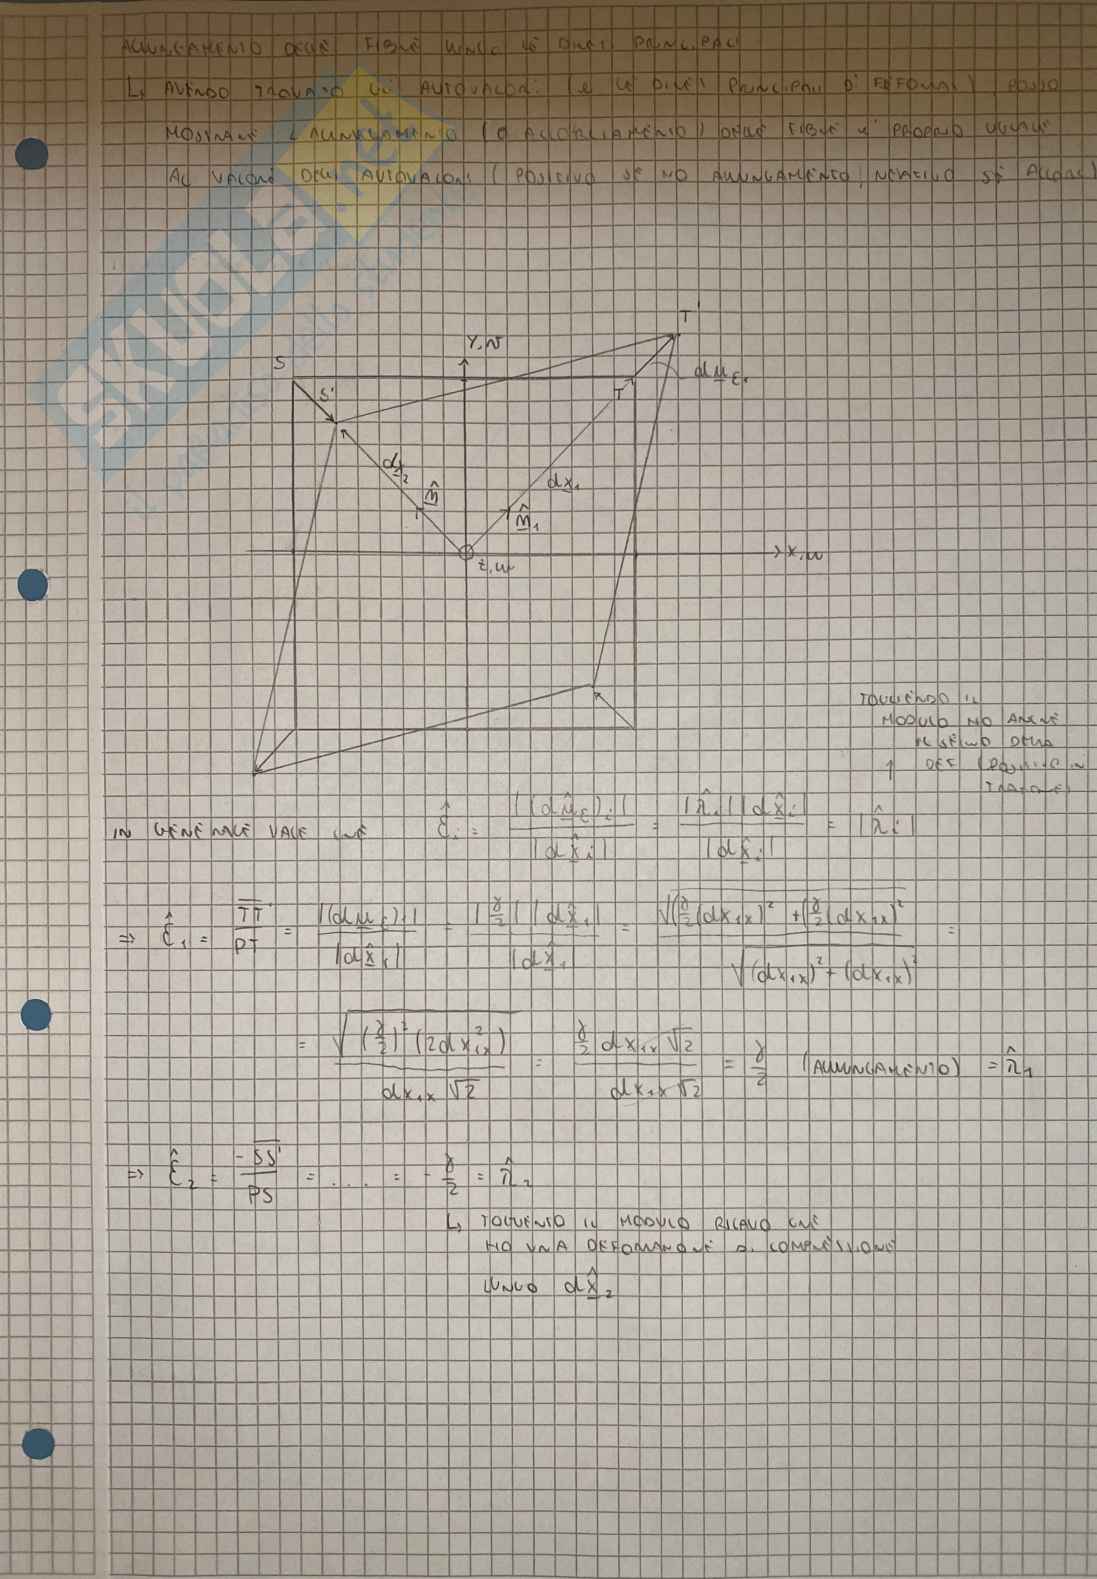 ALLUNGAMENTO DELLE FIBRE LUNGO LE DIREZ PRINCIPALI
↳ AVENDO TROVATO GLI AUTOVALORI (E LE DIREZ PRINCIPALI DI DEFORMAZ) POSSO
MOSTRARE L'ALLUNGAMENTO (O ACCORCIAMENTO) DELLE FIBRE È PROPRIO UGUALE
AL VALORE DEGLI AUTOVALORI (POSITIVO SE HO ALLUNGAMENTO, NEGATIVO SE ACCORC)
SKUOLA.net
T'
Y,v
S
du_ε₁
S'
T
dx₂
dx₁
n̂
n̂₁
X,u
z,w
TOGLIENDO IL
MODULO HO ANCHE
IL SEGNO DELLA
DEF (POSITIVO IN
TRAZIONE)
IN GENERALE VALE CHE ε̂ᵢ = |(dû_ε)ᵢ| / |dx̂ᵢ| = |λ̂ᵢ| |dx̂ᵢ| / |dx̂ᵢ| = |λ̂ᵢ|
⇒ ε̂₁ = TT' / PT = |(du_ε)₁| / |dx̂₁| = |γ/2| |dx̂₁| / |dx̂₁| = √((γ/2 (dx₁ₓ))² + (γ/2 (dx₁ₓ))²) / √((dx₁ₓ)² + (dx₁ₓ)²) =
= √((γ/2)² (2dx₁ₓ²)) / dx₁ₓ √2 = γ/2 dx₁ₓ √2 / dx₁ₓ √2 = γ/2 (ALLUNGAMENTO) = λ̂₁
⇒ ε̂₂ = -SS' / PS = .... = -γ/2 = λ̂₂
↳ TOGLIENDO IL MODULO RICAVO CHE
HO UNA DEFORMAZIONE DI COMPRESSIONE
LUNGO dx̂₂